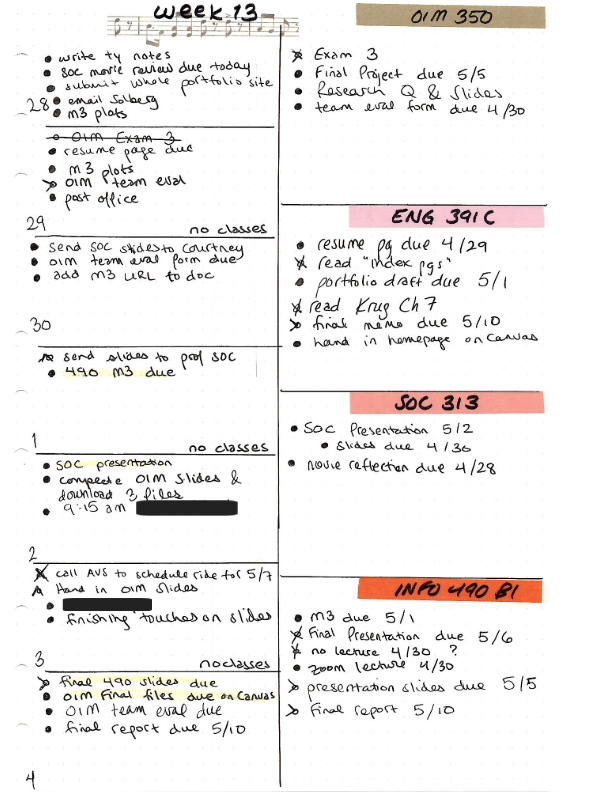 WEEK 13
• write ty notes
• SOC movie review due today
• submit whole portfolio site
• email Solberg
28
• m3 plots
• OIM Exam 3
• resume page due
• m3 plots
> OIM team eval
• post office
29
no classes
• send SOC slides to Courtney
• OIM team eval form due
• add M3 URL to doc
30
send slides to prof SOC
• 490 M3 due
1
no classes
• SOC presentation
• complete OIM slides &
download 3 files
• 9:15 am
2
x call AVS to schedule ride for 5/7
Hand in OIM slides
• finishing touches on slides
3
no classes
> final 490 slides due
• OIM Final files due on Canvas
• OIM team eval due
• final report due 5/10
4
OIM 350
x Exam 3
• Final Project due 5/5
• Research Q & Slides
• team eval form due 4/30
ENG 391C
• resume pg due 4/29
x read "index pgs"
• portfolio draft due 5/1
x read Krug Ch 7
> final memo due 5/10
• hand in homepage on Canvas
SOC 313
• SOC Presentation 5/2
• slides due 4/30
• movie reflection due 4/28
INFO 490 BI
• M3 due 5/1
x Final Presentation due 5/6
x no lecture 4/30 ?
• zoom lecture 4/30
> presentation slides due 5/5
> final report 5/10